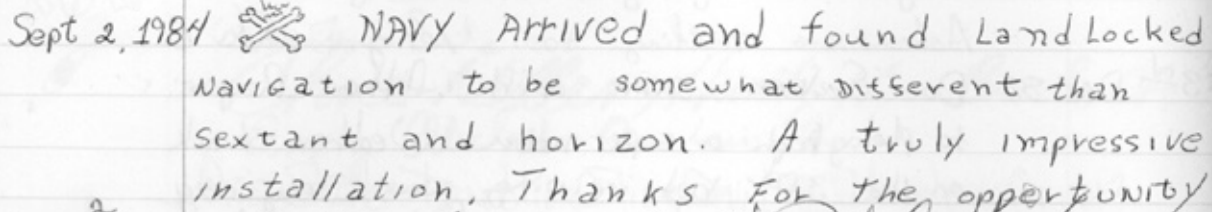 Sept 2, 1984 NAVY Arrived and found Land Locked
Navigation to be somewhat Different than
sextant and horizon. A truly impressive
installation. Thanks For the opportunity